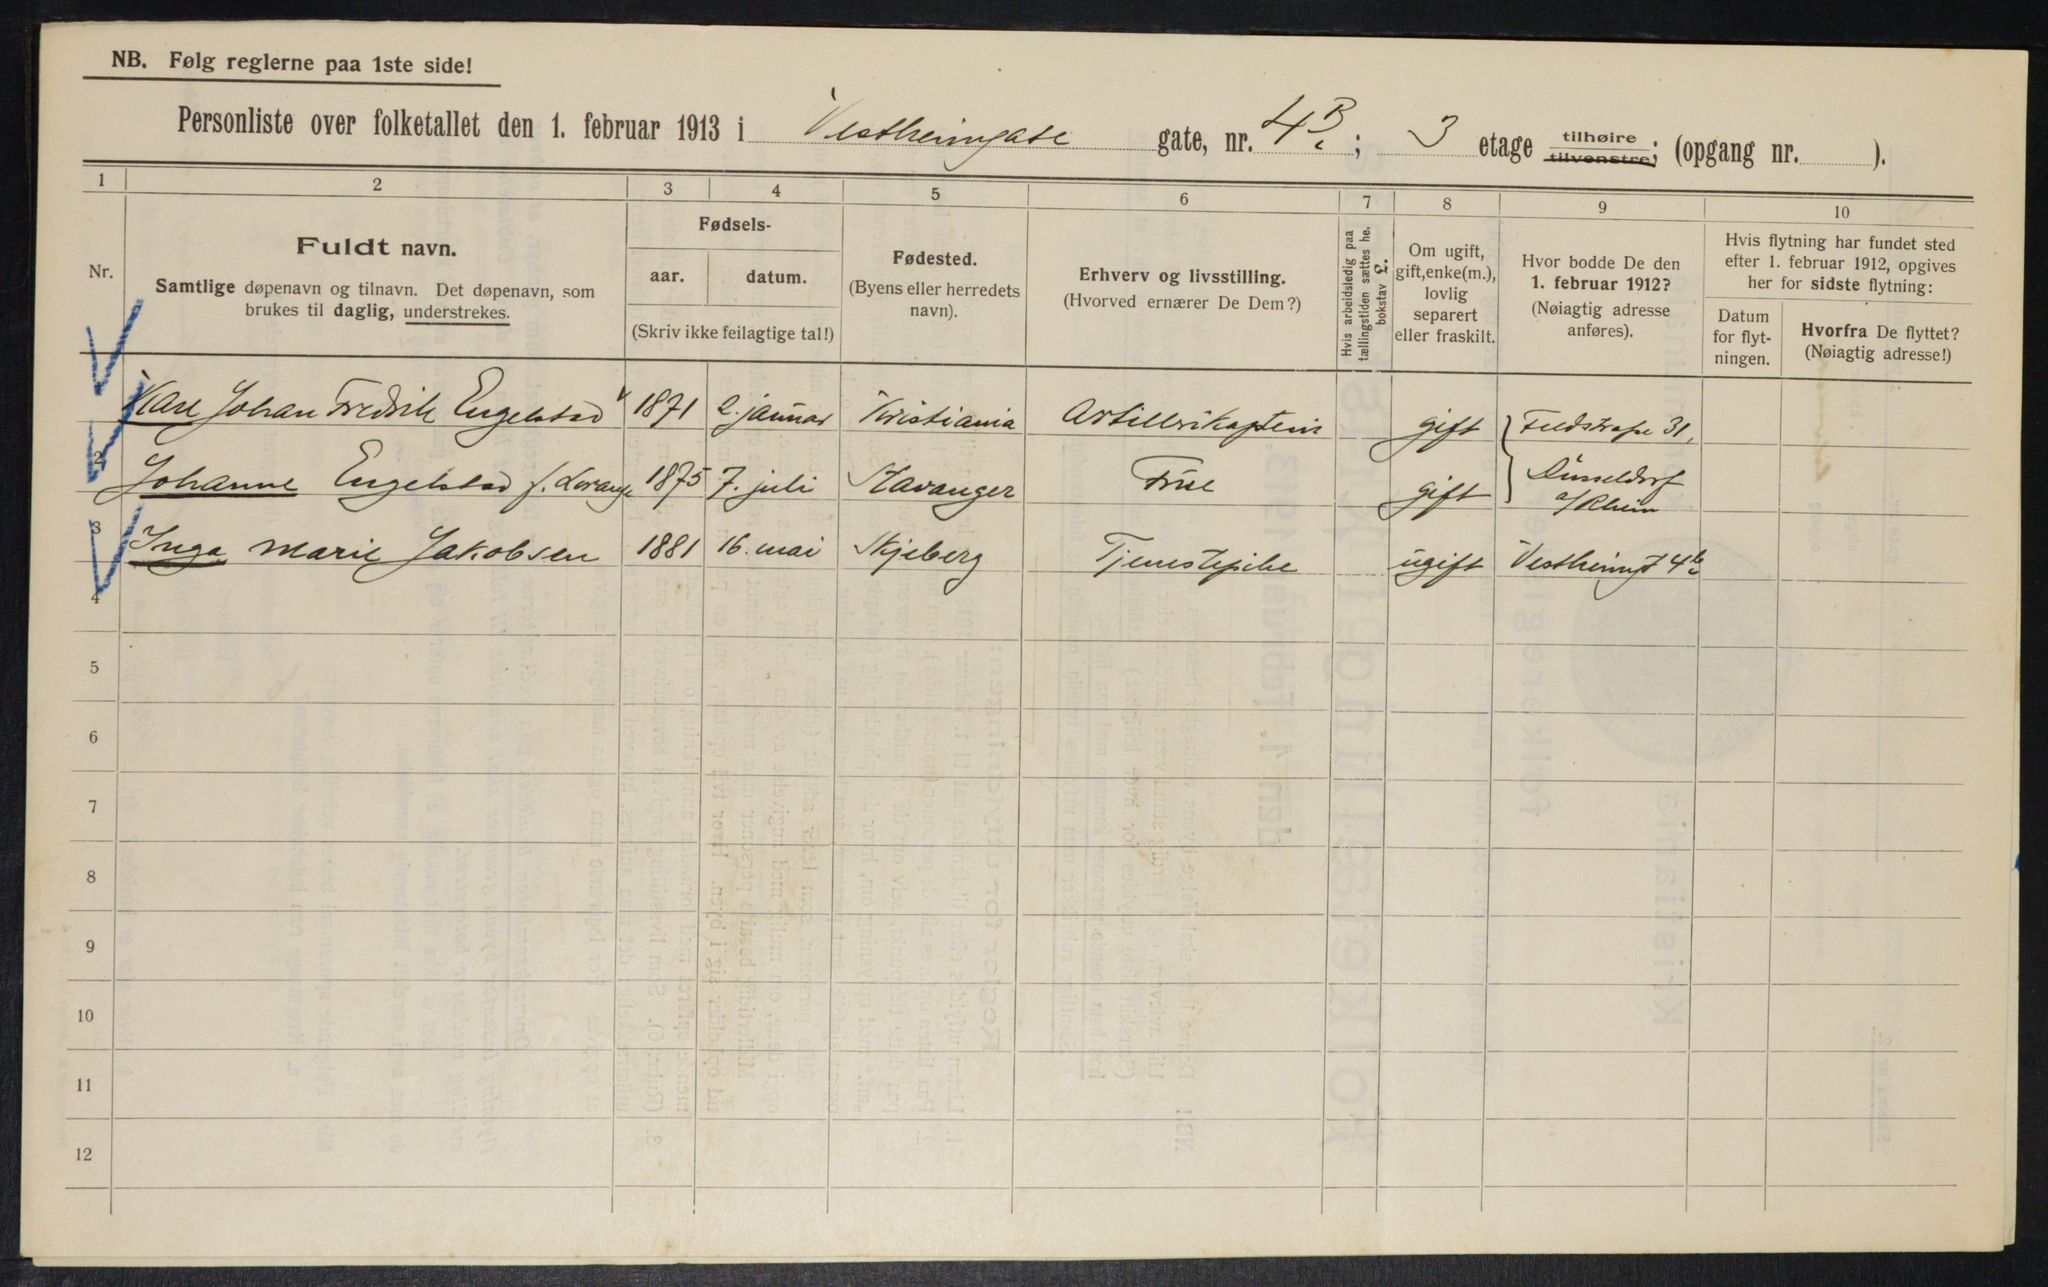 NB. Følg reglerne paa 1ste side!
Personliste over folketallet den 1. februar 1913 i Vestheimgate gate, nr. 4B; 3 etage tilhøire tilvenstre; (opgang nr. ).
1 2 3 4 5 6 7 8 9 10
Nr.
Fuldt navn.
Samtlige døpenavn og tilnavn. Det døpenavn, som
brukes til daglig, understrekes.
Fødsels-
aar. datum.
(Skriv ikke feilagtige tal!)
Fødested.
(Byens eller herredets
navn).
Erhverv og livsstilling.
(Hvorved ernærer De Dem?)
Hvis arbeidsledig paa
tællingstiden sættes he.
bokstav £.
Om ugift,
gift, enke(m.),
lovlig
separert
eller fraskilt.
Hvor bodde De den
1. februar 1912?
(Nøiagtig adresse
anføres).
Hvis flytning har fundet sted
efter 1. februar 1912, opgives
her for sidste flytning:
Datum
for flyt-
ningen.
Hvorfra De flyttet?
(Nøiagtig adresse!)
Karl Johan Fredrik Engelstad 1871 2. januar Kristiania Artillerikaptein gift 31,
2 Johanne Engelstad f. Lorange 1875 7. juli Stavanger Frue gift Düsseldorf
a/Rhein
3 Inga Marie Jakobsen 1881 16. mai Skjeberg Tjenestepike ugift Vestheimgt 4b
4
5
6
7
8
9
10
11
12